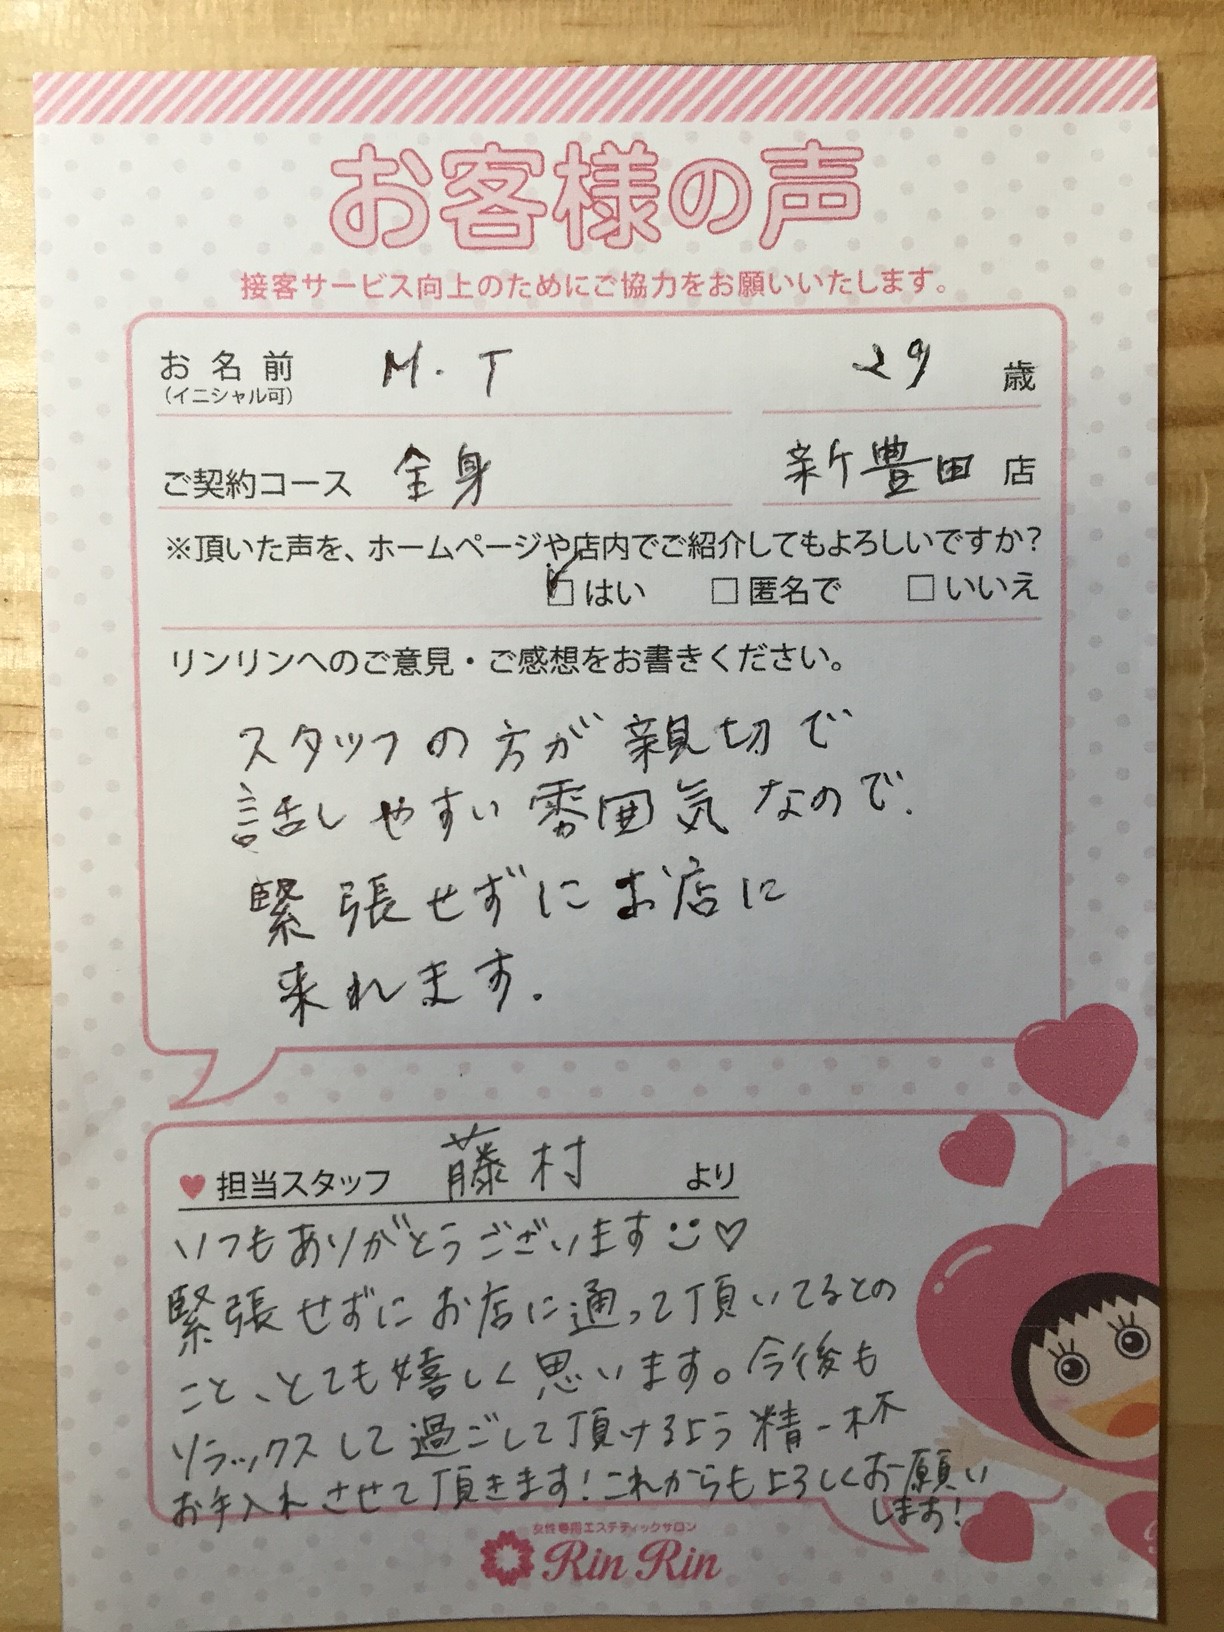 お客様の声
接客サービス向上のためにご協力をお願いいたします。
お名前 M.T 29 歳
(イニシャル可)
ご契約コース 全身 新豊田 店
※頂いた声を、ホームページや店内でご紹介してもよろしいですか?
はい □匿名で □いいえ
リンリンへのご意見・ご感想をお書きください。
スタッフの方が親切で
話しやすい雰囲気なので.
緊張せずにお店に
来れます.
♥担当スタッフ 藤村 より
いつもありがとうございます♡
緊張せずにお店に通って頂いてるとの
こと、とても嬉しく思います。今後も
リラックスして過ごして頂けるよう精一杯
お手入れさせて頂きます!これからもよろしくお願い
します!
女性専用エステティックサロン
Rin Rin